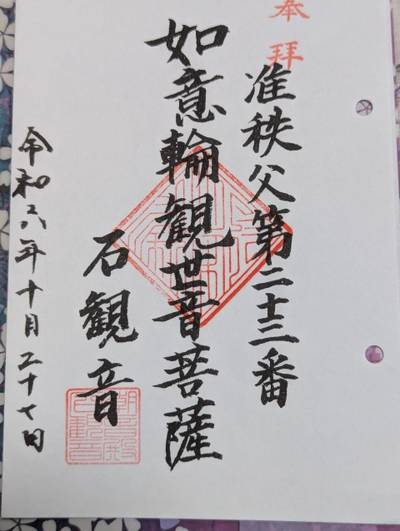 奉拝
准秩父第二十三番
如意輪観世音菩薩
石観音
令和六年十月二十七日